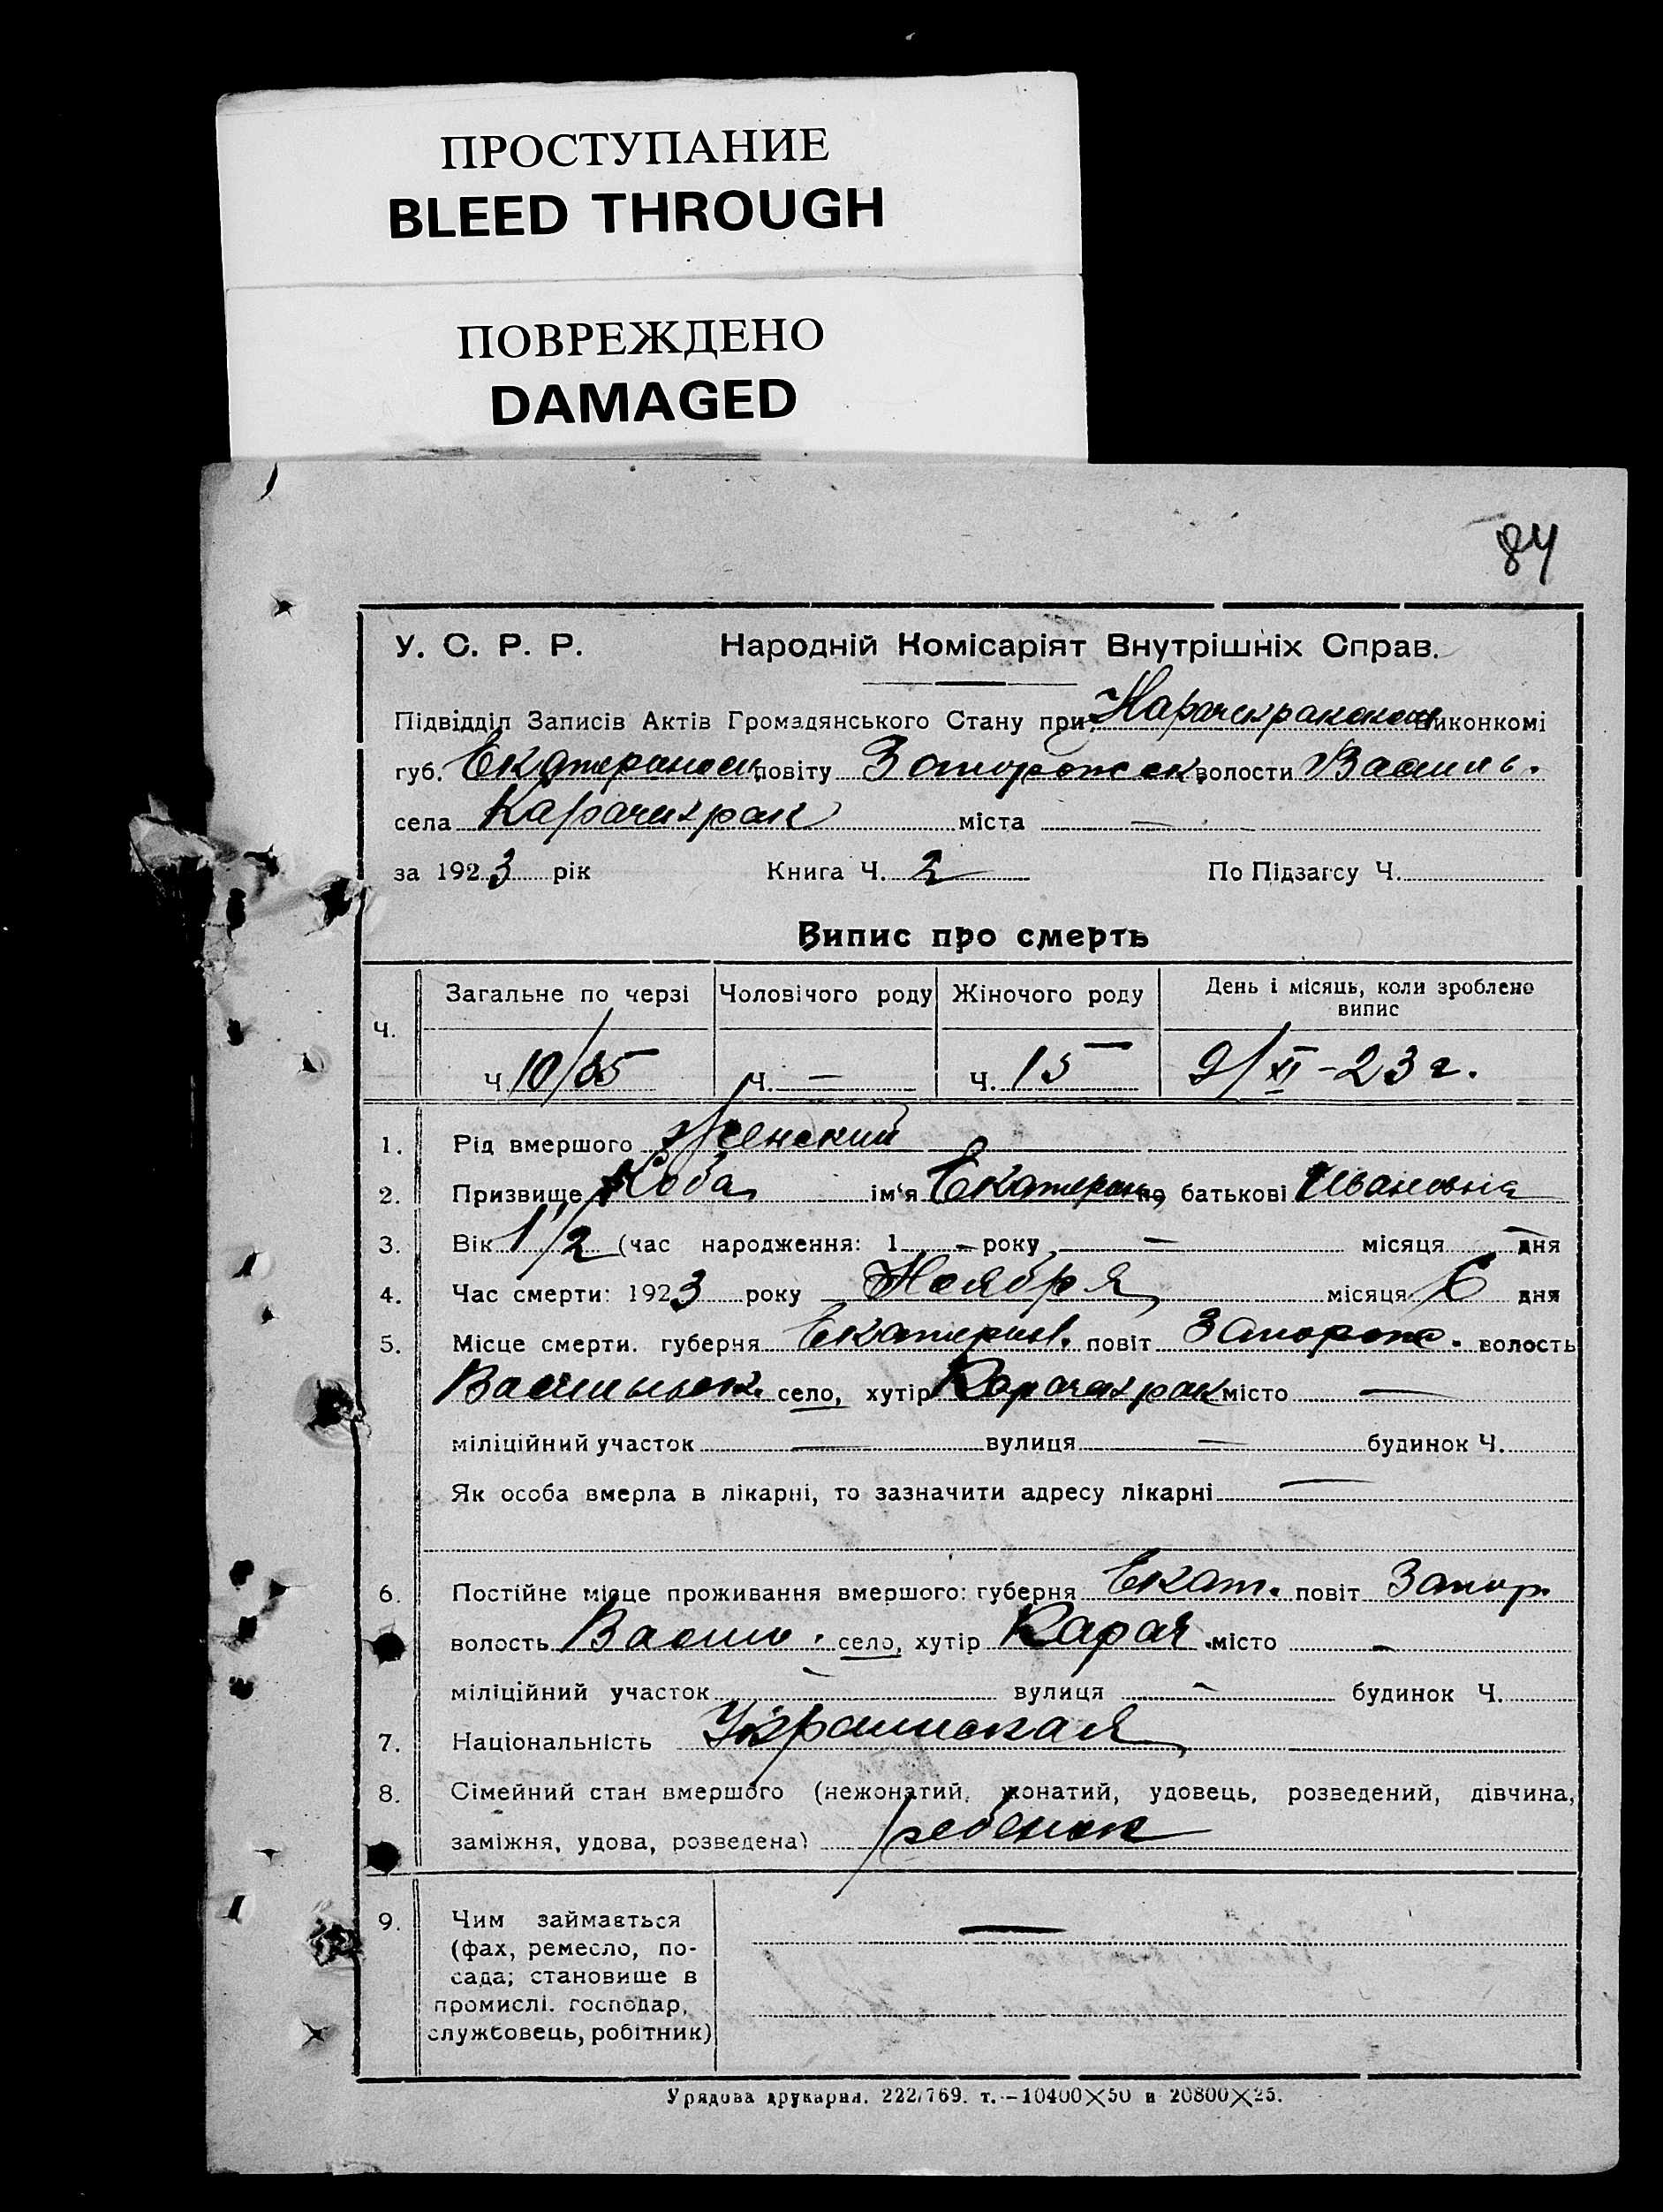 ПРОСТУПАНИЕ
BLEED THROUGH
ПОВРЕЖДЕНО
DAMAGED
84
У. С. Р. Р. Народній Комісаріят Внутрішніх Справ.
Підвідділ Записів Актів Громадянського Стану при виконкомі
губ. повіту Запорожск. волости Василь.
села Карачекрак міста —
за 1923 рік Книга Ч. 2 По Підзагсу Ч.
Випис про смерть
Ч. Загальне по черзі Чоловічого роду Жіночого роду День і місяць, коли зроблено
випис
Ч. 10/35 Ч. — Ч. 15 9/XI-23 г.
1. Рід вмершого Женский
2. Призвище Коба ім'я Екатерина по батькові Ивановна
3. Вік 1 1/2 (час народження: 1 — року — місяця — дня
4. Час смерти: 1923 року Ноября місяця 6 дня
5. Місце смерти. губерня Екатерин. повіт Запорож. волость
Васильевск. село, хутір Карачекрак місто —
міліційний участок — вулиця — будинок Ч.
Як особа вмерла в лікарні, то зазначити адресу лікарні —
6. Постійне місце проживання вмершого: губерня Екат. повіт Запор.
волость Васил. село, хутір Карач. місто —
міліційний участок — вулиця — будинок Ч.
7. Національність Украинская
8. Сімейний стан вмершого (нежонатий, жонатий, удовець, розведений, дівчина,
заміжня, удова, розведена) ребенок
9. Чим займається —
(фах, ремесло, по-
сада; становище в
промислі. господар,
службовець, робітник)
Урядова друкарня. 222/769. т. —10400×50 и 20800×25.